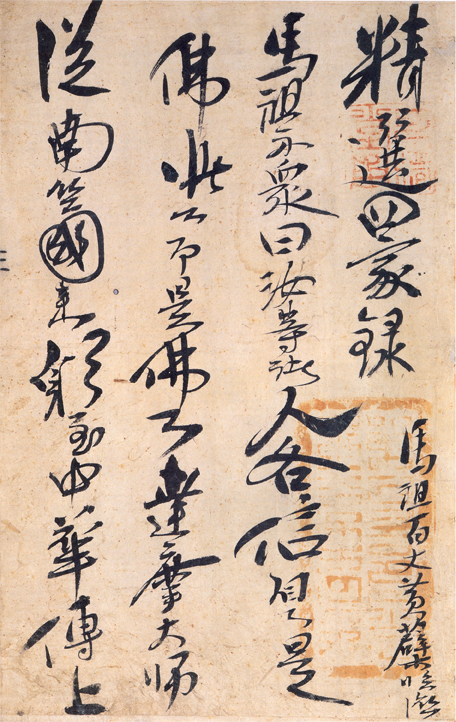 精選四家錄
馬祖百丈黃蘗臨濟
馬祖示衆曰汝等諸人各信自心是
佛此心即是佛心達摩大師
從南竺國來躬至中華傳上